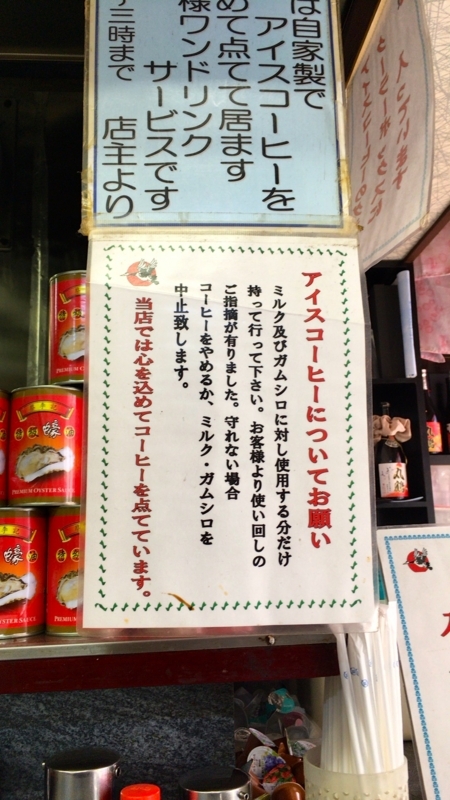 は自家製で
アイスコーヒーを
めて点てて居ます
様ワンドリンク
サービスです
三時まで
店主より
アイスコーヒーについてお願い
ミルク及びガムシロに対し使用する分だけ
持って行って下さい。お客様より使い回しの
ご指摘が有りました。守れない場合
コーヒーをやめるか、ミルク・ガムシロを
中止致します。
当店では心を込めてコーヒーを点てています。
PREMIUM OYSTER SAUCE